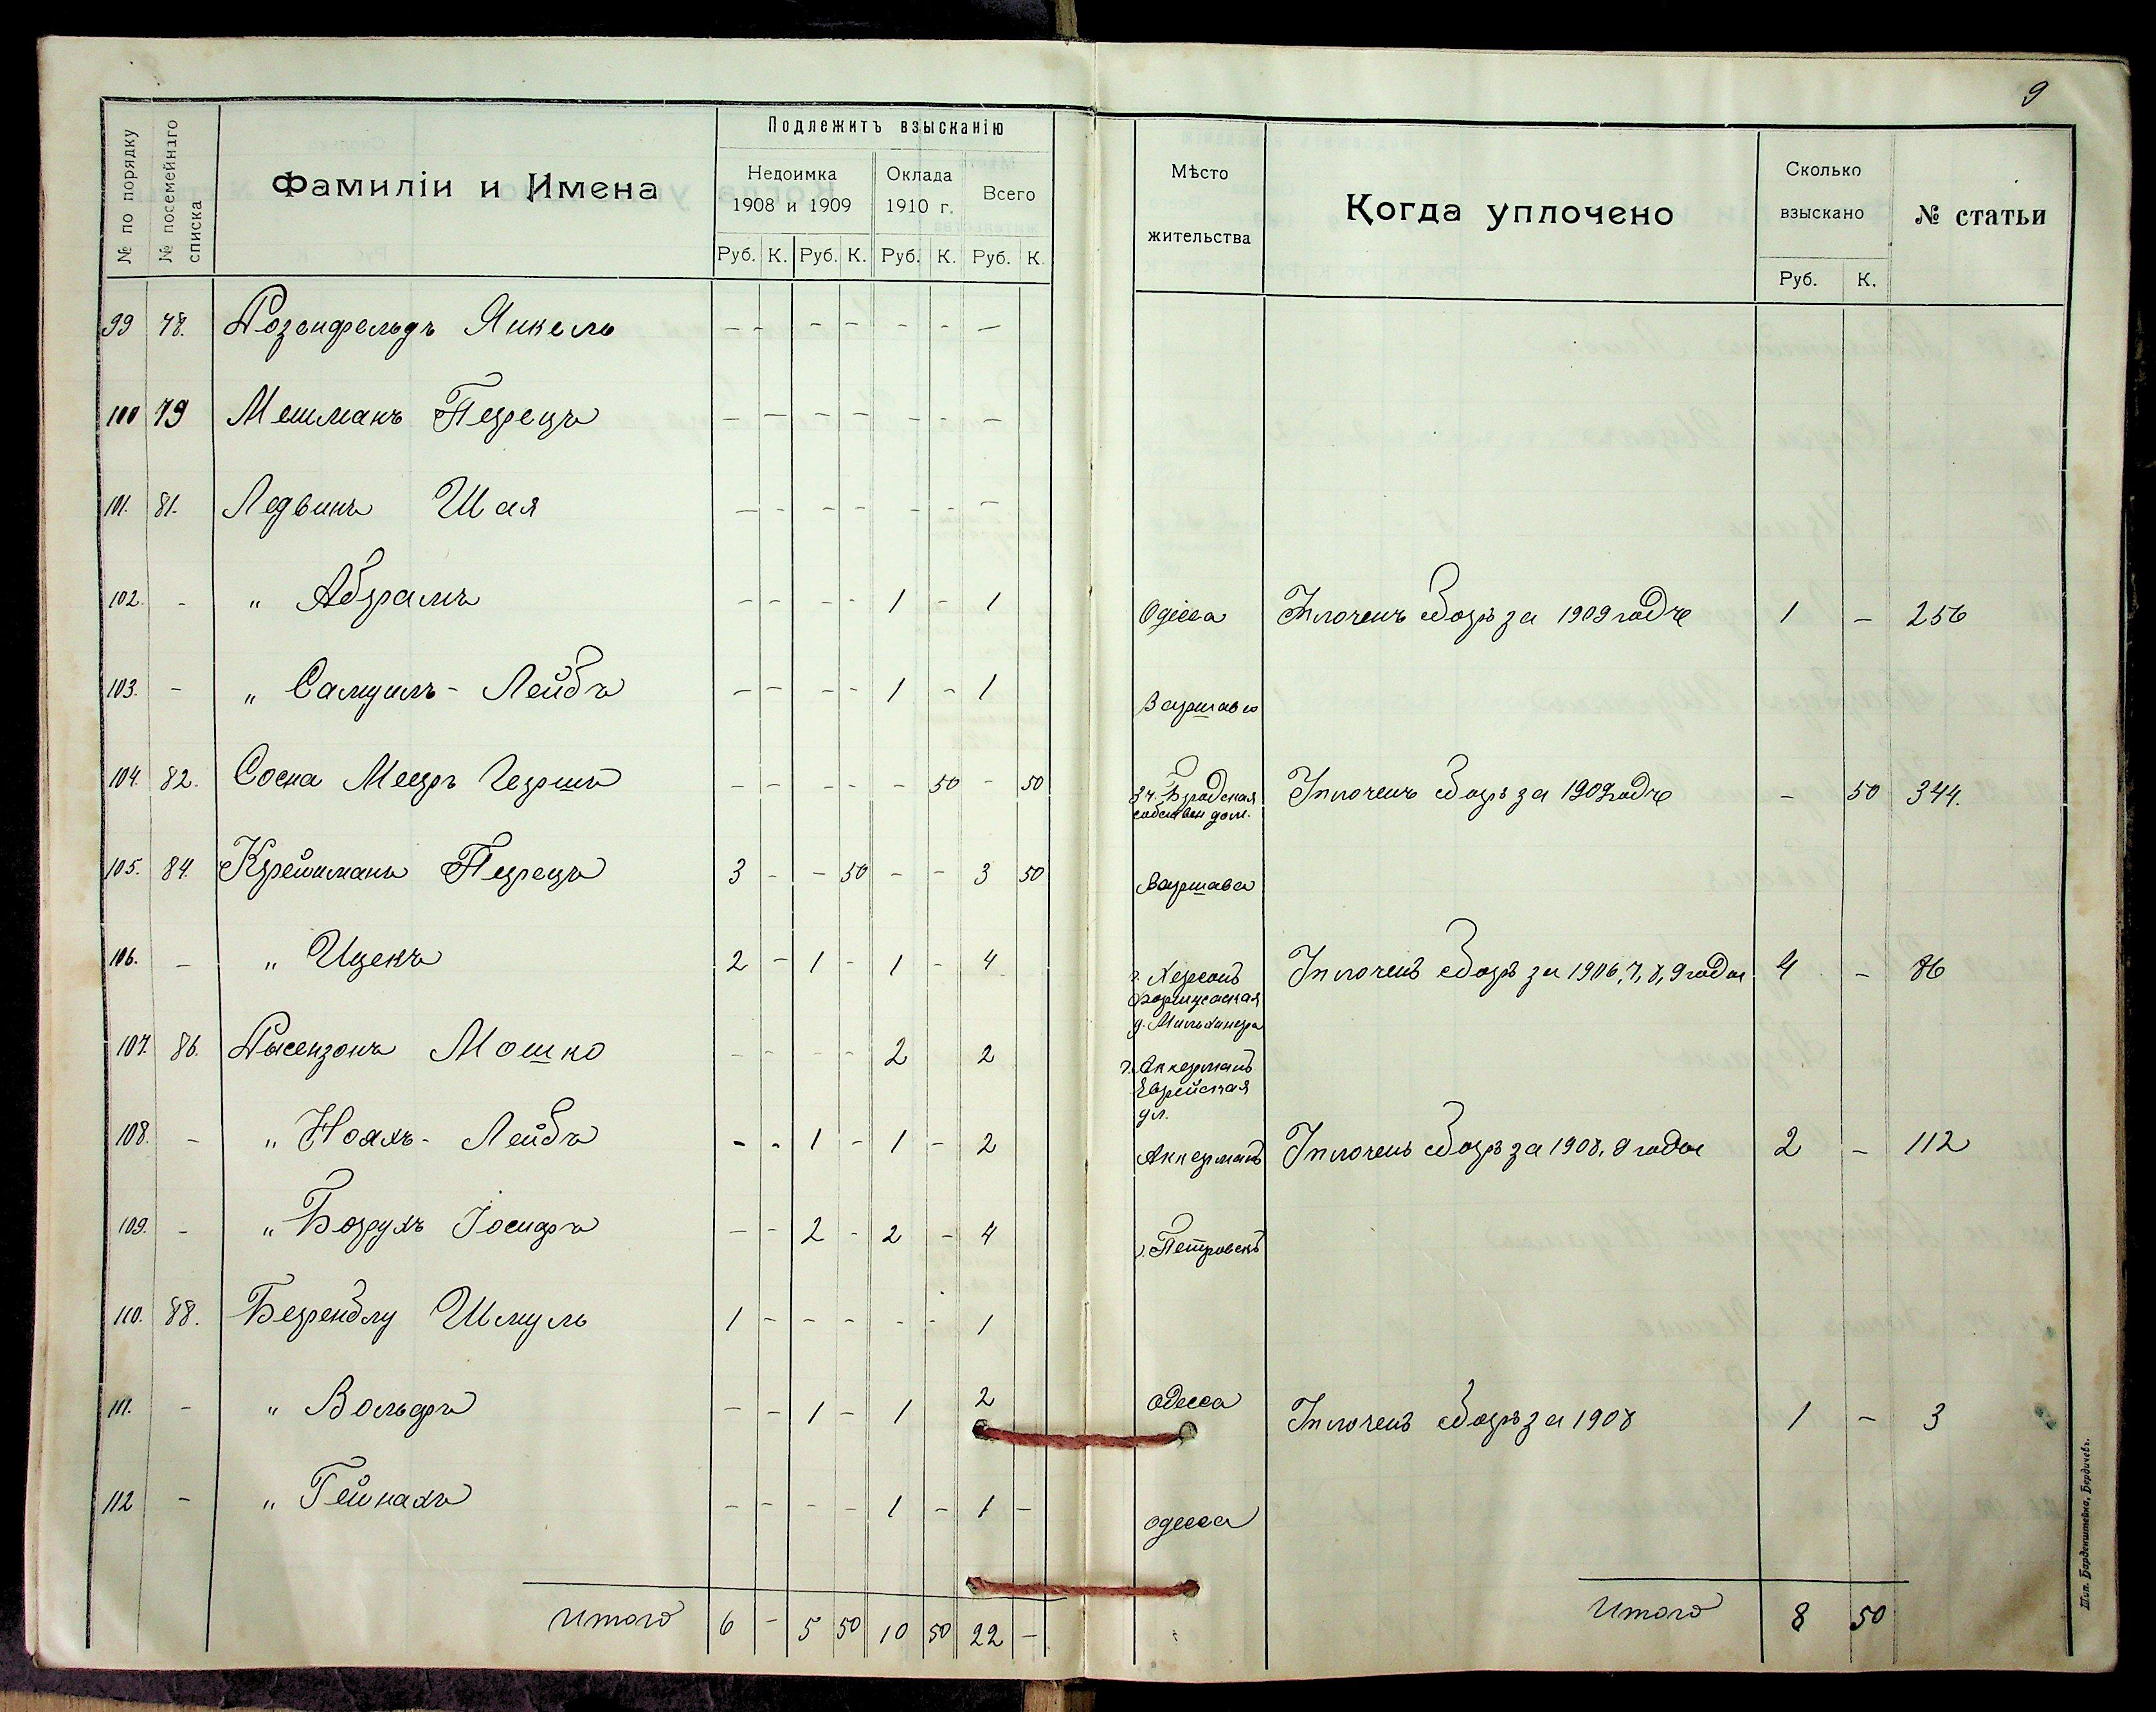 9
№ по порядку
№ посемейнаго списка
Фамиліи и Имена
Подлежитъ взысканію
Недоимка
1908 и 1909
Оклада
1910 г.
Всего
Руб. К. Руб. К. Руб. К. Руб. К.
Мѣсто
жительства
Когда уплочено
Сколько
взыскано
Руб. К.
№ статьи
99 78. Розенфельдъ Янкель – – – – – – –
100 79 Мешманъ Перецъ – – – – – – –
101. 81. Ледвинъ Шая – – – – – – –
102. – " Абрамъ – – – – 1 – 1 Одесса Уплоченъ сборъ за 1909 годъ 1 – 256
103. – " Самуилъ - Лейбъ – – – – 1 – 1 Варшава
104. 82. Сосна Мееръ Гершъ – – – – – 50 – 50
собствен дом.
Уплоченъ сборъ за 1909 годъ – 50 344.
105. 84. Крейчманъ Перецъ 3 – – 50 – – 3 50 Варшава
106. – " Ицекъ 2 – 1 – 1 – 4 г. Херсонъ
д. Мильхикера
Уплоченъ сборъ за 1906, 7, 8, 9 года 4 – 86
107. 86. Мошко – – – – 2 2 г. Аккерманъ
Еврейская
ул.
108. – " Ноахъ - Лейбъ – – 1 – 1 – 2 Аккерманъ Уплоченъ сборъ за 1908, 9 года 2 – 112
109. – " Борухъ Іосифъ – – 2 – 2 – 4 г. Петровскъ
110. 88. Шмуль 1 – – – – – 1
111. – " Вольфъ – – 1 – 1 2 Одесса Уплоченъ сборъ за 1908 1 – 3
112 – " Гейнахъ – – – – 1 – 1 – Одесса
Итого 6 – 5 50 10 50 22 –
Итого 8 50
Тип. Барденштейна, Бердичевъ.